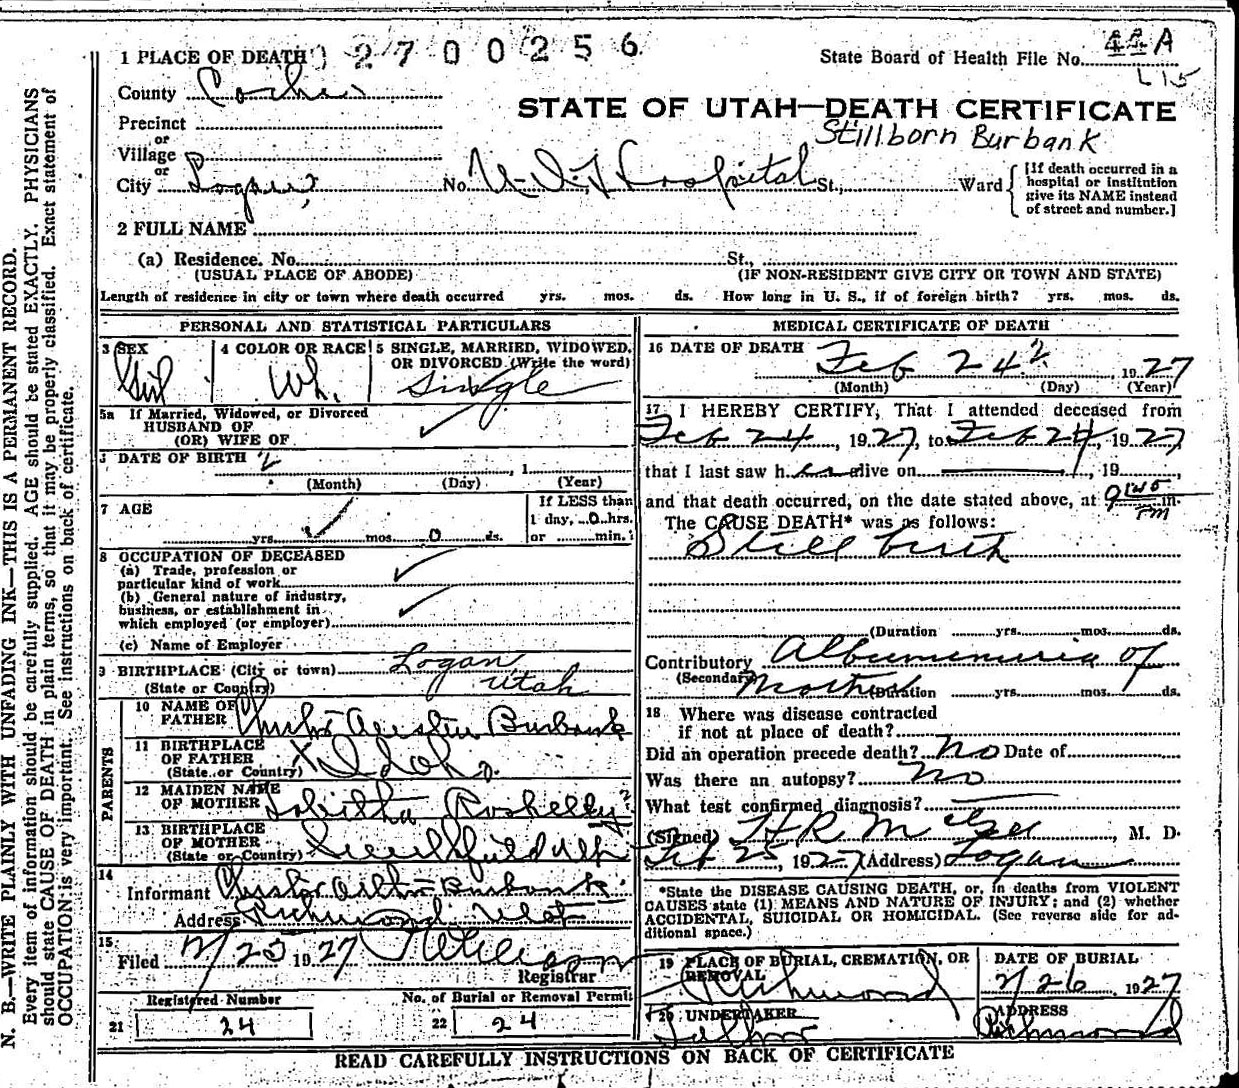 N. B.—WRITE PLAINLY WITH UNFADING INK—THIS IS A PERMANENT RECORD.
Every item of information should be carefully supplied. AGE should be stated EXACTLY. PHYSICIANS
should state CAUSE OF DEATH in plain terms, so that it may be properly classified. Exact statement of
OCCUPATION is very important. See instructions on back of certificate.
1 PLACE OF DEATH 2700256
State Board of Health File No. 44 A
L 15
County Cache
STATE OF UTAH—DEATH CERTIFICATE
Precinct
Stillborn Burbank
or
Village
or
City Logan No. Hospital St., Ward [If death occurred in a
hospital or institution
give its NAME instead
of street and number.]
2 FULL NAME
(a) Residence. No. St.,
(USUAL PLACE OF ABODE) (IF NON-RESIDENT GIVE CITY OR TOWN AND STATE)
Length of residence in city or town where death occurred yrs. mos. ds. How long in U. S., if of foreign birth? yrs. mos. ds.
PERSONAL AND STATISTICAL PARTICULARS
3 SEX 4 COLOR OR RACE 5 SINGLE, MARRIED, WIDOWED,
OR DIVORCED (Write the word)
Girl Wh. Single
5a If Married, Widowed, or Divorced
HUSBAND OF
(OR) WIFE OF
DATE OF BIRTH 2 , 1
(Month) (Day) (Year)
7 AGE If LESS than
1 day, 0 hrs.
yrs. mos. 0 ds. or min.
8 OCCUPATION OF DECEASED
(a) Trade, profession or
particular kind of work
(b) General nature of industry,
business, or establishment in
which employed (or employer)
(c) Name of Employer
9 BIRTHPLACE (City or town) Logan
(State or Country) Utah
PARENTS
10 NAME OF
FATHER Burbank
11 BIRTHPLACE
OF FATHER
(State or Country) Idaho
12 MAIDEN NAME
OF MOTHER Tabitha
13 BIRTHPLACE
OF MOTHER
(State or Country) Smithfield Utah
14
Informant Burbank
Address Richmond Utah
15
Filed 2/25 1927
Registrar
Registered Number No. of Burial or Removal Permit
21 24 22 24
MEDICAL CERTIFICATE OF DEATH
16 DATE OF DEATH Feb 24 1927
(Month) (Day) (Year)
17 I HEREBY CERTIFY, That I attended deceased from
Feb 24, 1927, to Feb 24, 1927
that I last saw h er alive on , 19
and that death occurred, on the date stated above, at 9 m.
PM
The CAUSE DEATH* was as follows:
Still birth
(Duration yrs. mos. ds.
Contributory Albumenuria of
(Secondary) Mother (Duration yrs. mos. ds.
18 Where was disease contracted
if not at place of death?
Did an operation precede death? No Date of
Was there an autopsy? No
What test confirmed diagnosis?
(Signed) H R McGee, M. D.
Feb 25, 1927 (Address) Logan
*State the DISEASE CAUSING DEATH, or, in deaths from VIOLENT
CAUSES state (1) MEANS AND NATURE OF INJURY; and (2) whether
ACCIDENTAL, SUICIDAL OR HOMICIDAL. (See reverse side for ad-
ditional space.)
19 PLACE OF BURIAL, CREMATION, OR
REMOVAL
DATE OF BURIAL
Richmond 2/26, 1927
20 UNDERTAKER ADDRESS
Father Richmond
READ CAREFULLY INSTRUCTIONS ON BACK OF CERTIFICATE